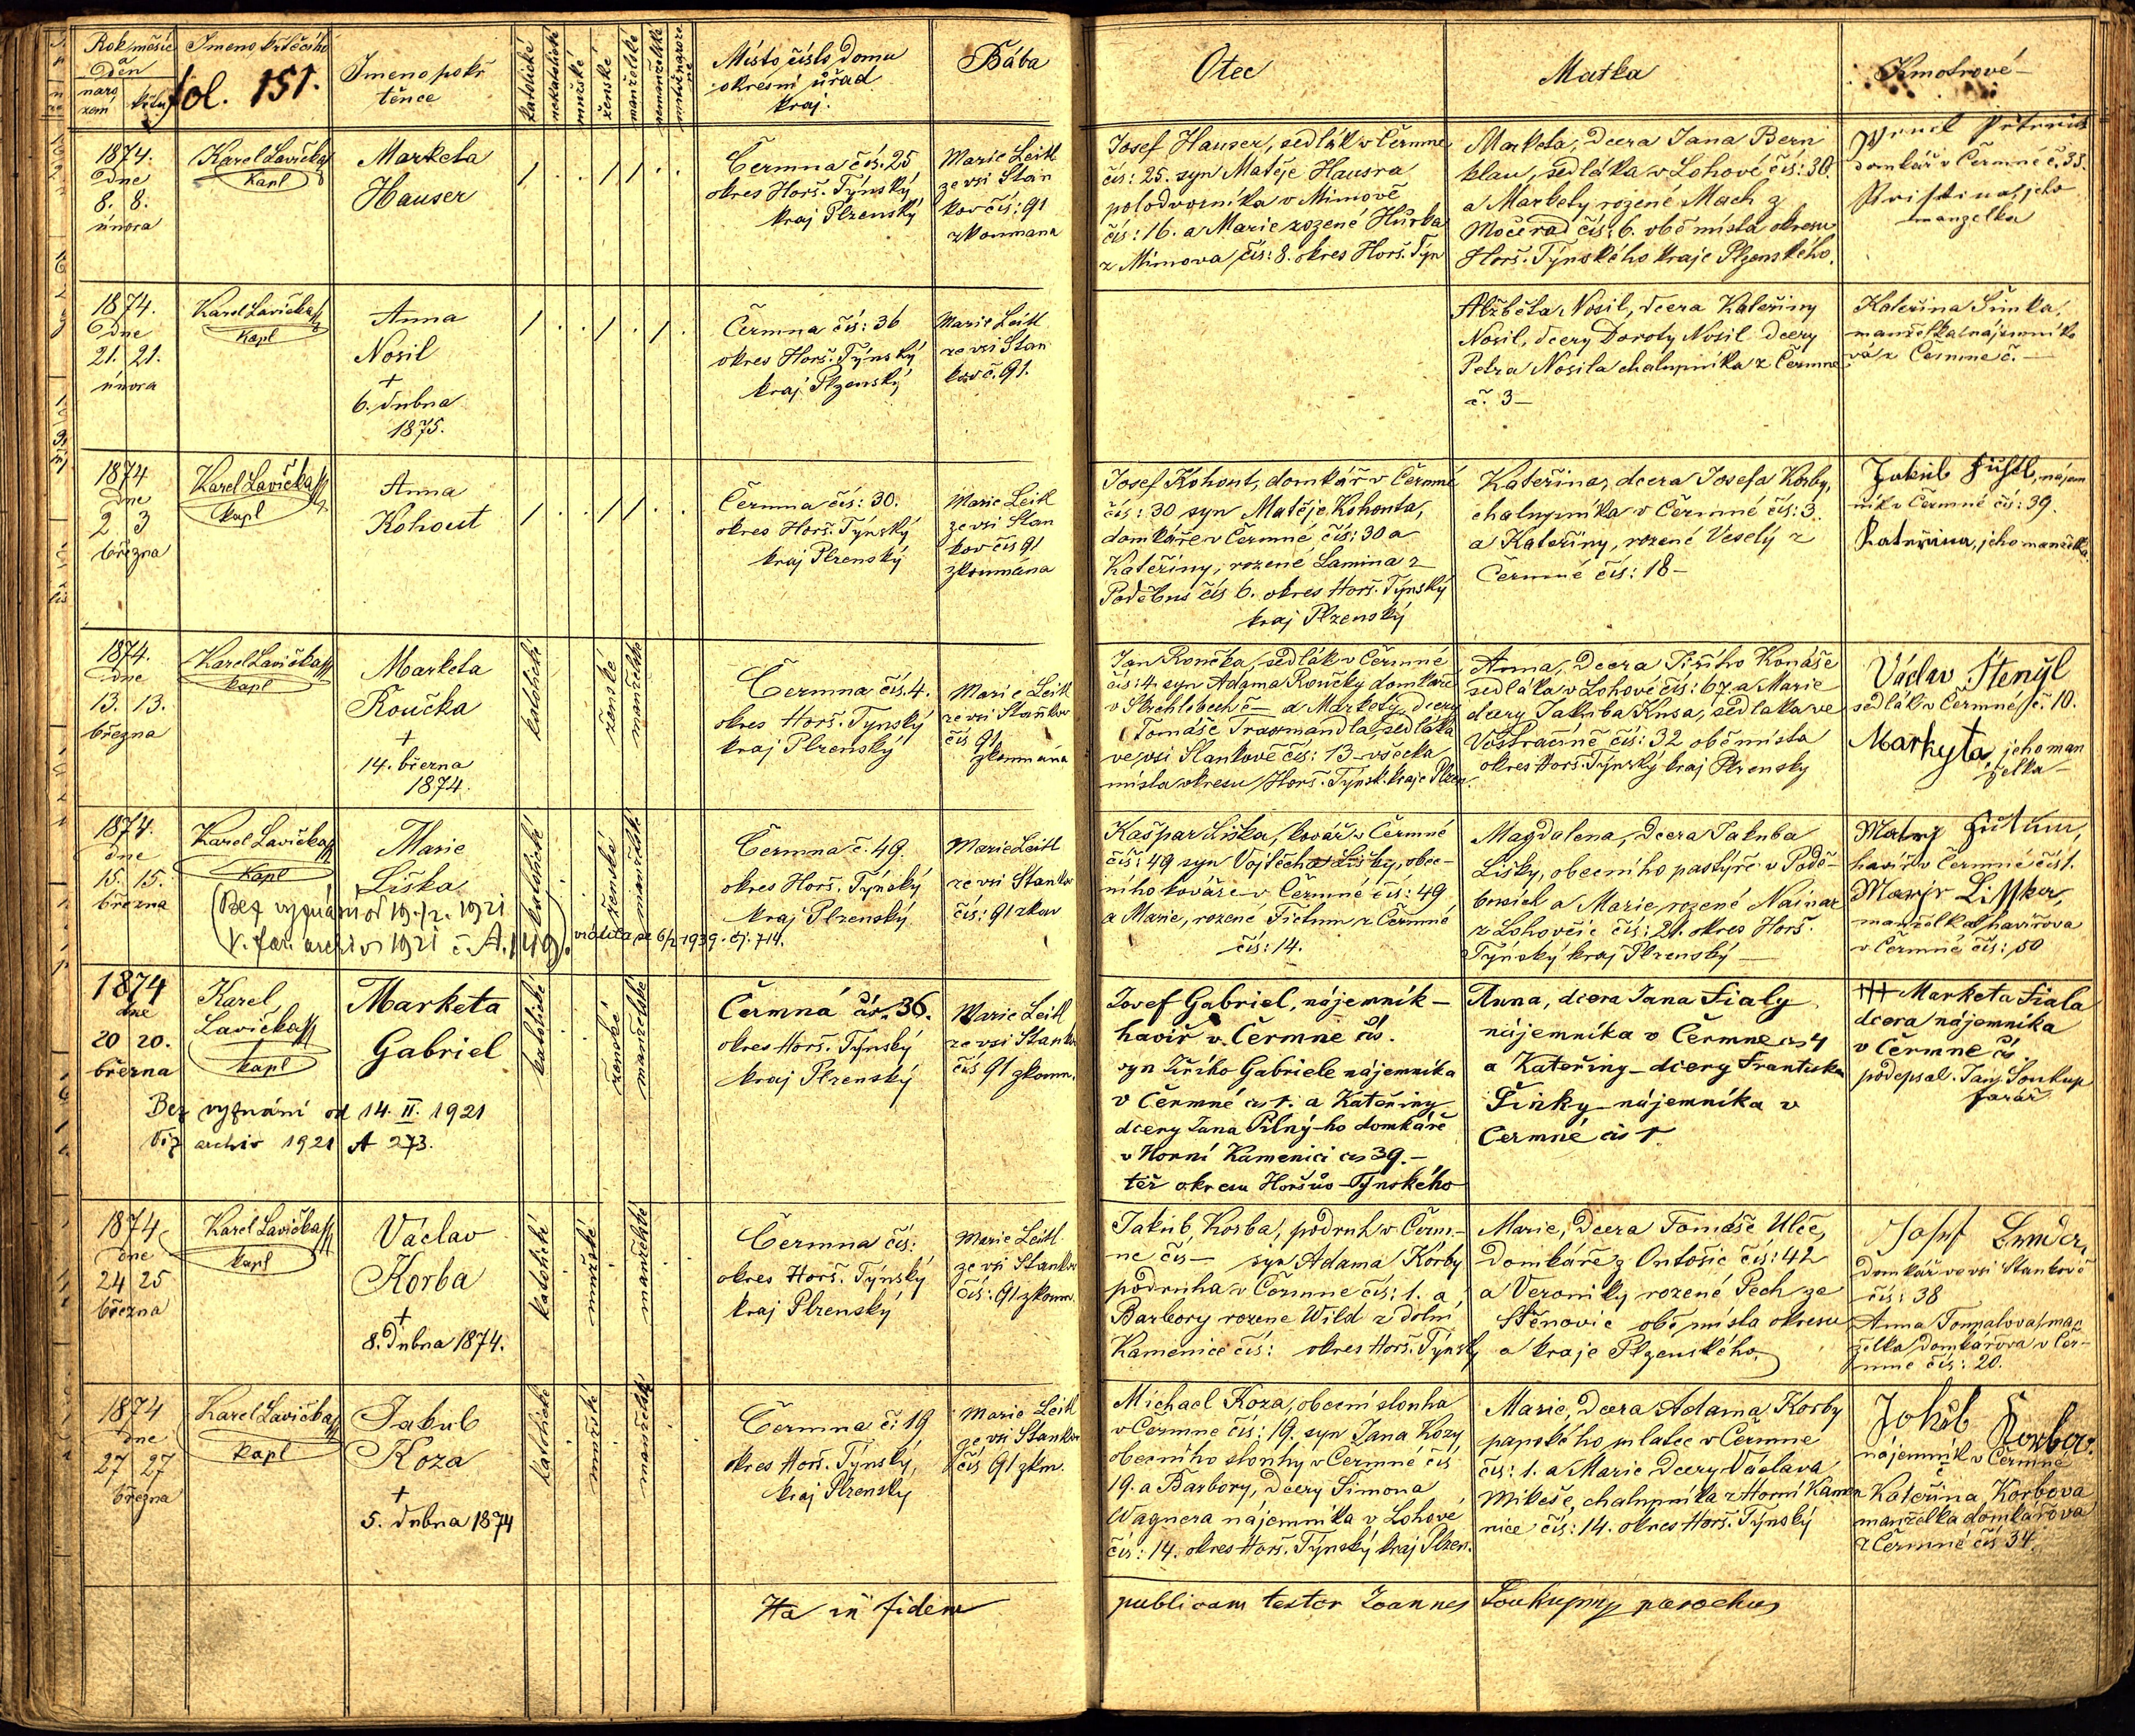 Rok měsíc
a
Den
naro
zení
křtu
Jmeno křtěcího
fol. 151.
Jmeno pokř
těnce
katolické
nekatolické
mužské
ženské
manželské
nemanželské
Místo, číslo domu
okresní úřad
kraj.
Bába
Otec
Matka
Kmotrové
1874.
Dne
8. 8.
února
Karel Lavička
kapl
Marketa
Hauser
Čermna čís. 25
okres Horš. Týnský
kraj Plzenský
Marie Leitl
ze vsi Stan
kov čís: 91
zkoumana
Josef Hauser, sedlák v Čermne
čís: 25. syn Matěje Hausra
polodvorníka v Mimově
čís: 16. a Marie rozené Hůrka
z Mimova čís: 8. okres Horš. Týn
Marketa, Dcera Jana Bern
klau, sedláka v Lohové čís: 30.
a Markety rozené Mach z
Močerad čís: 6. obě místa okresu
Horš. Týnského kraje Plzenského.
domkář v Čermné č. 35.
jeho
manzelka
1874.
Dne
21. 21.
února
Karel Lavička
kapl
Anna
Nosil
+
6. dubna
1875.
Čermna čís: 36
okres Horš. Týnský
kraj Plzenský
Marie Leitl
ze vsi Stan
kov č. 91.
Alžběta Nosil, dcera Kateřiny
Nosil, dcery Doroty Nosil dcery
Petra Nosila chalupníka z Čermne
č. 3 —
Kateřina Šimka,
manželka nájemníko
vá z Čermne č. —
1874
Dne
2 3
března
Karel Lavička
kapl
Anna
Kohout
Čermna čís: 30.
okres Horš. Týnský
kraj Plzenský
Marie Leitl
ze vsi Stan
kov čís 91
zkoumána
Josef Kohout, domkář v Čermné
čís: 30 syn Matěje Kohouta,
domkáře v Čermné čís: 30 a
Kateřiny, rozené Lamina z
Poděbus čís 6. okres Horš. Týnský
kraj Plzenský
Kateřina, dcera Josefa Korby,
chalupníka v Čermné čís: 3.
a Kateřiny, rozené Veselý z
Čermné čís: 18 —
Jakub Fühtl, nájem
ník v Čermné čís: 39.
Kateřina, jeho manželka
1874.
Dne
13. 13.
března
Karel Lavička
kapl
Marketa
Roučka
+
14. března
1874.
katolické
ženské
manželské
Čermna čís. 4.
okres Horš. Týnský
kraj Plzenský
Marie Leitl
ze vsi Staňkov
čís 91
zkoumána
Jan Roučka, sedlák v Čermné
čís: 4. syn Adama Roučky domkáře
v Střehlebech č — a Markety, dcery
Tomáše Traxmandla, sedláka
ve vsi Stankově čís: 13 — všecka
místa okresu Horš. Týnsk. kraje Plzen.
Anna, Dcera Jiřího Konáše
sedláka v Lohové čís: 67. a Marie
dcery Jakuba Kusa, sedlaka ve
Vostračíně čís: 32 obě místa
okres Horš. Týnský kraj Plzensky
Václav Štengl
sedlák v Čermné č. 10.
Markyta, jeho man
želka
1874.
dne
15. 15.
března
Karel Lavička
kapl
Marie
Liška
(Bez vyznání od 19./2. 1921
V. far. archiv 1921 č. A. 149).
vrátila se 6/2 1939. čj. 714.
katolické
ženské
manželské
Čermna č. 49.
okres Horš. Týnský
kraj Plzenský.
Marie Leitl
ze vsi Stankov
čís: 91 zkou
Kašpar Liška, kovář v Čermné
čís: 49 syn Vojtěcha Lišky, obec-
ního kováře v Čermné čís: 49
a Marie, rozené Fictum z Čermné
čís: 14.
Magdalena, Dcera Jakuba
Lišky, obecního pastýře v Podě-
busích a Marie, rozené Nainar
z Lohovčic čís: 21. okres Horš.
Týnský kraj Plzenský —
havíř v Čermné čís 1.
manželka havířova
v Čermné čís: 50
1874
dne
20 20.
března
Karel
Lavička
kapl
Marketa
Gabriel
Bez vyznání od 14. II. 1921
Viz archiv 1921 A 273.
katolické
ženské
manželské
Čermná čís. 36.
okres Horš. Týnský
kraj Plzenský
Marie Leitl
ze vsi Stankov
čís 91 zkoum.
Josef Gabriel, nájemník —
havíř v Čermne čís.
syn Jiřího Gabriele nájemníka
v Čermné čís 1. a Kateřiny
dcery Jana Pilný-ho domkáře
v Horní Kamenici čís 39. —
též okresu Horšův-Týnského
Anna, dcera Jana Fialy
nájemníka v Čermne čís 4
a Kateřiny — dcery Frantiska
Šinky — nájemníka v
Čermné čis 1.
+++ Marketa Fiala
dcera nájemníka
v Čermne čs.
podepsal. Jan Soukup
farář
1874
Dne
24 25
března
Karel Lavička
kapl
Václav
Korba
+
8. Dubna 1874.
katolické
mužské
manželské
Čermna čís:
okres Horš. Týnský
kraj Plzenský
Marie Leitl
ze vsi Stankov
čís: 91 zkoum.
Jakub Korba, podruh v Čerm-
ne čís — syn Adama Korby
podruha v Čermne čís: 1. a
Barbory rozene Wild z dolní
Kamenice čís: okres Horš. Týnsky
Marie, Dcera Tomáše Ulče,
Domkáře z Ontošic čís: 42
a Veroniky rozené Pech ze
Stěnovic obě místa okresu
a kraje Plzenského
Josef
Domkář ve vsi Stankově
čís: 38
Anna Toupalova, man
želka domkářova v Čer-
mne čís: 20.
1874
dne
27 27
března
Karel Lavička
kapl
Jakub
Koza
+
5. dubna 1874
katolické
mužské
manželské
Čermna č: 19
okres Horš. Týnský,
kraj Plzensky
Marie Leitl
ze vsi Stankov
čís 91 zkm.
Michael Koza, obecní slouha
v Čermne čís: 19. syn Jana Kozy
obecního slouhy v Čermné čís
19. a Barbory, Dcery Šimona
Wagnera nájemníka v Lohové
čís: 14. okres Horš. Týnský kraj Plzen.
Marie, Dcera Adama Korby
panského mlatce v Čermne
čís: 1. a Marie Dcery Václava
Mikeše, chalupníka z Horní Kame
nice čís: 14. okres Horš. Týnský
Jakob Korba.
nájemník v Čermne
č
Kateřina Korbova
manželka domkářova
z Čermné čís 34.
Ita in fidem publicam testor Joannes Soukup mp parochus